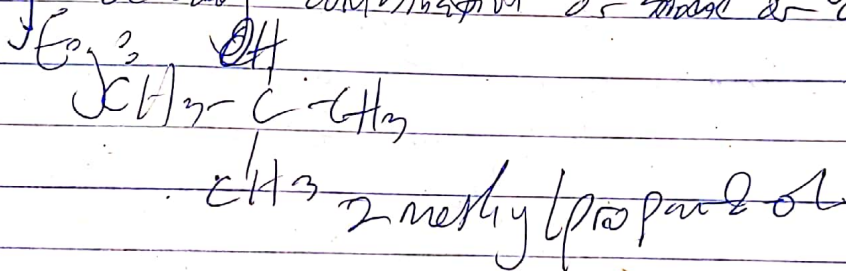 Eg:
OH
CH3-C-CH3
CH3
2methylpropan2ol